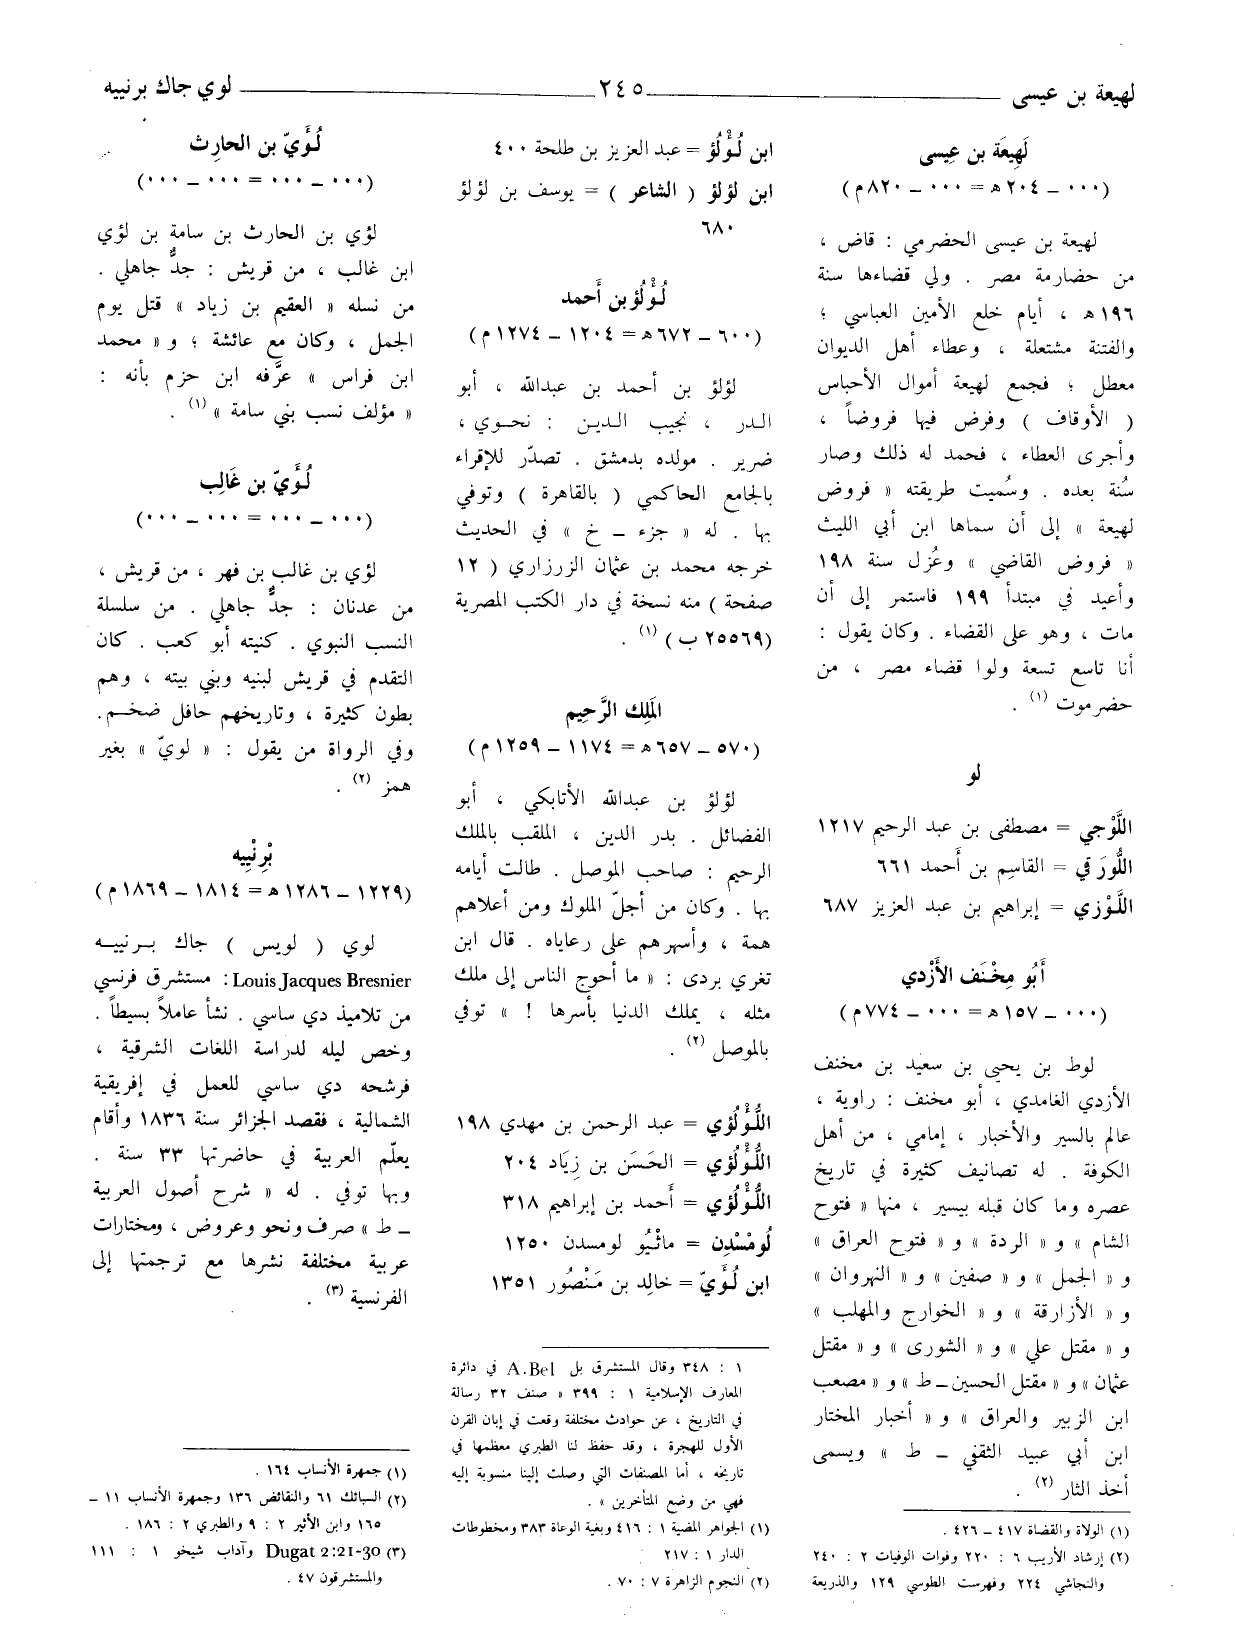 لهيعة بن عيسى ـــــ ٢٤٥ ـــــ لوي جاك برنييه
لَهِيعَة بن عِيسى
(٠٠٠ ـ ٢٠٤ ﻫ = ٠٠٠ ـ ٨٢٠ م)
لهيعة بن عيسى الحضرمي : قاض ،
من حضارمة مصر . ولي قضاءها سنة
١٩٦ ﻫ ، أيام خلع الأمين العباسي ؛
والفتنة مشتعلة ، وعطاء أهل الديوان
معطل ؛ فجمع لهيعة أموال الأحباس
( الأوقاف ) وفرض فيها فروضاً ،
وأجرى العطاء ، فحمد له ذلك وصار
سُنة بعده . وسُميت طريقته « فروض
لهيعة » إلى أن سماها ابن أبي الليث
« فروض القاضي » وعُزل سنة ١٩٨
وأعيد في مبتدأ ١٩٩ فاستمر إلى أن
مات ، وهو على القضاء . وكان يقول :
أنا تاسع تسعة ولوا قضاء مصر ، من
حضرموت (١) .
لو
اللَّوْجي = مصطفى بن عبد الرحيم ١٢١٧
اللُّورَقي = القاسِم بن أَحمد ٦٦١
اللَّوْزي = إبراهيم بن عبد العزيز ٦٨٧
أَبُو مِخْنَف الأَزْدي
(٠٠٠ ـ ١٥٧ ﻫ = ٠٠٠ ـ ٧٧٤ م)
لوط بن يحيى بن سعيد بن مخنف
الأزدي الغامدي ، أبو مخنف : راوية ،
عالم بالسير والأخبار ، إمامي ، من أهل
الكوفة . له تصانيف كثيرة في تاريخ
عصره وما كان قبله بيسير ، منها « فتوح
الشام » و « الردة » و « فتوح العراق »
و « الجمل » و « صفين » و « النهروان »
و « الأزارقة » و « الخوارج والمهلب »
و « مقتل علي » و « الشورى » و « مقتل
عثمان » و « مقتل الحسين ـ ط » و « مصعب
ابن الزبير والعراق » و « أخبار المختار
ابن أبي عبيد الثقفي ـ ط » ويسمى
أخذ الثار (٢) .
(١) الولاة والقضاة ٤١٧ ـ ٤٢٦ .
(٢) إرشاد الأريب ٦ : ٢٢٠ وفوات الوفيات ٢ : ٢٤٠
والنجاشي ٢٢٤ وفهرست الطوسي ١٢٩ والذريعة
ابن لُؤْلُؤ = عبد العزيز بن طلحة ٤٠٠
ابن لؤلؤ ( الشاعر ) = يوسف بن لؤلؤ
٦٨٠
لُؤْلُؤ بن أَحمد
(٦٠٠ ـ ٦٧٢ ﻫ = ١٢٠٤ ـ ١٢٧٤ م)
لؤلؤ بن أحمد بن عبدالله ، أبو
الدر ، نجيب الدين : نحوي ،
ضرير . مولده بدمشق . تصدّر للإقراء
بالجامع الحاكمي ( بالقاهرة ) وتوفي
بها . له « جزء ـ خ » في الحديث
خرجه محمد بن عثمان الزرزاري ( ١٢
صفحة ) منه نسخة في دار الكتب المصرية
(٢٥٥٦٩ ب ) (١) .
المَلِك الرَّحيم
(٥٧٠ ـ ٦٥٧ ﻫ = ١١٧٤ ـ ١٢٥٩ م)
لؤلؤ بن عبدالله الأتابكي ، أبو
الفضائل . بدر الدين ، الملقب بالملك
الرحيم : صاحب الموصل . طالت أيامه
بها . وكان من أجلّ الملوك ومن أعلاهم
همة ، وأسهرهم على رعاياه . قال ابن
تغري بردى : « ما أحوج الناس إلى ملك
مثله ، يملك الدنيا بأسرها ! » توفي
بالموصل (٢) .
اللُّؤْلُؤي = عبد الرحمن بن مهدي ١٩٨
اللُّؤْلُؤي = الحَسَن بن زيَاد ٢٠٤
اللُّؤْلُؤي = أَحمد بن إبراهيم ٣١٨
لُومْسْدِن = ماثْيُو لومسدن ١٢٥٠
ابن لُؤَيّ = خالِد بن مَنْصُور ١٣٥١
١ : ٣٤٨ وقال المستشرق بل A.Bel في دائرة
المعارف الإسلامية ١ : ٣٩٩ « صنف ٣٢ رسالة
في التاريخ ، عن حوادث مختلفة وقعت في إبان القرن
الأول للهجرة ، وقد حفظ لنا الطبري معظمها في
تاريخه ، أما المصنفات التي وصلت إلينا منسوبة إليه
فهي من وضع المتأخرين » .
(١) الجواهر المضية ١ : ٤١٦ وبغية الوعاة ٣٨٣ ومخطوطات
الدار ١ : ٢١٧
(٢) النجوم الزاهرة ٧ : ٧٠ .
لُؤَيّ بن الحارِث
(٠٠٠ ـ ٠٠٠ = ٠٠٠ ـ ٠٠٠)
لؤي بن الحارث بن سامة بن لؤي
ابن غالب ، من قريش : جدٌّ جاهلي .
من نسله « العقيم بن زياد » قتل يوم
الجمل ، وكان مع عائشة ؛ و « محمد
ابن فراس » عرَّفه ابن حزم بأنه :
« مؤلف نسب بني سامة » (١) .
لُؤَيّ بن غَالِب
(٠٠٠ ـ ٠٠٠ = ٠٠٠ ـ ٠٠٠)
لؤي بن غالب بن فهر ، من قريش ،
من عدنان : جدٌّ جاهلي . من سلسلة
النسب النبوي . كنيته أبو كعب . كان
التقدم في قريش لبنيه وبني بيته ، وهم
بطون كثيرة ، وتاريخهم حافل ضخم.
وفي الرواة من يقول : « لويّ » بغير
همز (٢) .
بْرِنْيِيه
(١٢٢٩ ـ ١٢٨٦ ﻫ = ١٨١٤ ـ ١٨٦٩ م)
لوي ( لويس ) جاك برنييه
Louis Jacques Bresnier : مستشرق فرنسي
من تلاميذ دي ساسي . نشأ عاملاً بسيطاً .
وخص ليله لدراسة اللغات الشرقية ،
فرشحه دي ساسي للعمل في إفريقية
الشمالية ، فقصد الجزائر سنة ١٨٣٦ وأقام
يعلّم العربية في حاضرتها ٣٣ سنة .
وبها توفي . له « شرح أصول العربية
ـ ط » صرف ونحو وعروض ، ومختارات
عربية مختلفة نشرها مع ترجمتها إلى
الفرنسية (٣) .
(١) جمهرة الأنساب ١٦٤ .
(٢) السبائك ٦١ والنقائض ١٣٦ وجمهرة الأنساب ١١ ـ
١٦٥ وابن الأثير ٢ : ٩ والطبري ٢ : ١٨٦ .
(٣) Dugat 2:21-30 وآداب شيخو ١ : ١١١
والمستشرقون ٤٧ .